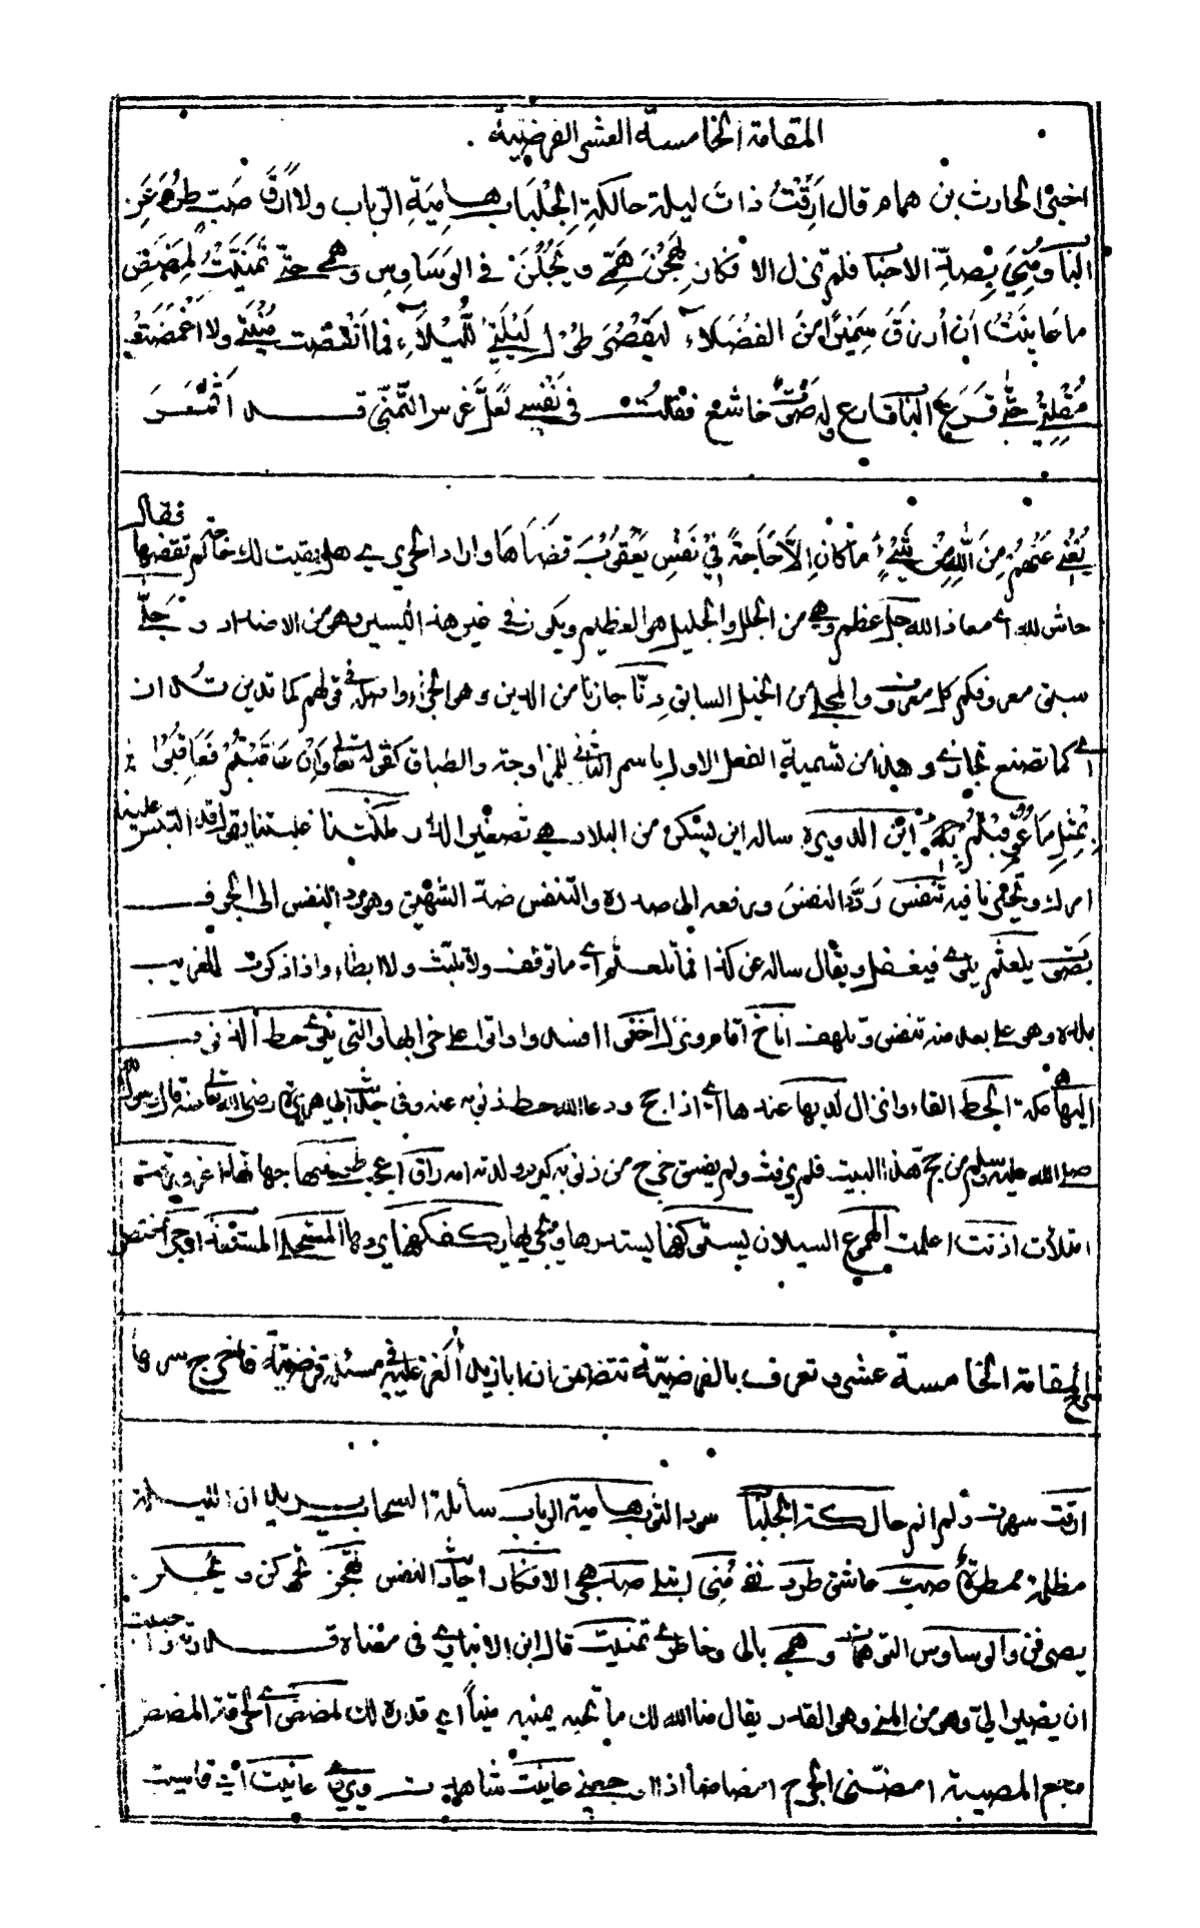 المقامة الخامسة العشر الفرضية
اخبر الحارث بن همام قال أرقت ذات ليلة حالكة الجلباب هامية الرباب ولا أرق صب طرد عن
الباب ومني بصد الاحباب فلم تزل الافكار يهجن همي ويجلن في الوساوس وهمي حتى تمنيت لمضض
ما عانيت أن أرزق سميرا من الفضلاء ليقصر طول ليلتي الليلاء فما انقضت منيتي ولا اغمضت
مقلتي حتى قرع الباب قارع له صوت خاشع فقلت في نفسي لعل غرس التمني قد أثمر
يغني عنهم من الله من شيء ما كان إلا حاجة في نفس يعقوب قضاها واراد الحريري هل بقيت لك حاجة لم تقضها فقال
حاش لله اي معاذ الله جل عظم وهي من الجلل والجليل هو العظيم ويكون في غير هذا اليسير وهو من الاضداد و جلى
سبق معروفكم كل معروف والمجلي من الخيل السابق دنا جازنا من الدين وهو الجزاء واصله في قولهم كما تدين تدان
اي كما تصنع تجازى وهذا من تسمية الفعل الاول باسم الثاني للمزاوجة والطباق كقوله تعالى وإن عاقبتم فعاقبوا
بمثل ما عوقبتم به اين الدويرة ساله اين يسكن من البلاد هي تصغير الدار ملكتنا غلبتنا قد التبس علينا
امرك وتحيرنا فيه تنفس ردد النفس ورفعه الى صدره والتنفس ضد الشهيق وهو رد النفس الى الجوف
يلعثم فيفصل ويقال ساله عن كذا فما تلعثم اي ما توقف ولا تلبث ولا ابطاء واذا ذكرت للغريب
بلده وهو على بعد منه تنفس وتلهف اناخ اقام ونزل اخنى افسد واتى على خرابها والتي نبغي حط الذنوب
اليها مكة الحط القاء وانزال لديها عندها اي اذا حج ودعا الله حط ذنوبه عنه وفي حديث ابي هريرة رضي الله تعالى عنه قال رسول الله
صلى الله عليه وسلم من حج هذا البيت فلم يرفث ولم يفسق خرج من ذنوبه كيوم ولدته امه راق اعجب
امتلأت اذنت اعلمت الهموع السيلان يستوكفها يستدرها يكفكفها يردها المستحلى
المقامة الخامسة عشر وتعرف بالفرضية تتضمن ان ابا زيد ألغز عليه في مسئلة فرضية فاخرج سرها
ارقت سهرت ولم انم حالكة الجلباب سود الثوب هامية الرباب سائلة السحاب يريد ان الليلة
مظلمة ممطرة صب عاشق طرد نفي مني ابتلي صد هجر الافكار احاديث النفس يهجن يحركن و يجلن
يصرفن والوساوس التوهمات وهمي بالي وخاطري تمنيت قال ابن الانباري في معناه قدرت واحببت
ان يصير الي وهو من المني وهو القدر يقال منا الله لك ما تحبه يمنيه منيا اي قدره لك لمضض اي لحرقة المضض
وجع المصيبة امضني الجرح امضاضا اذا وجعني عانيت شاهدت ويروى عانيت اي قاسيت